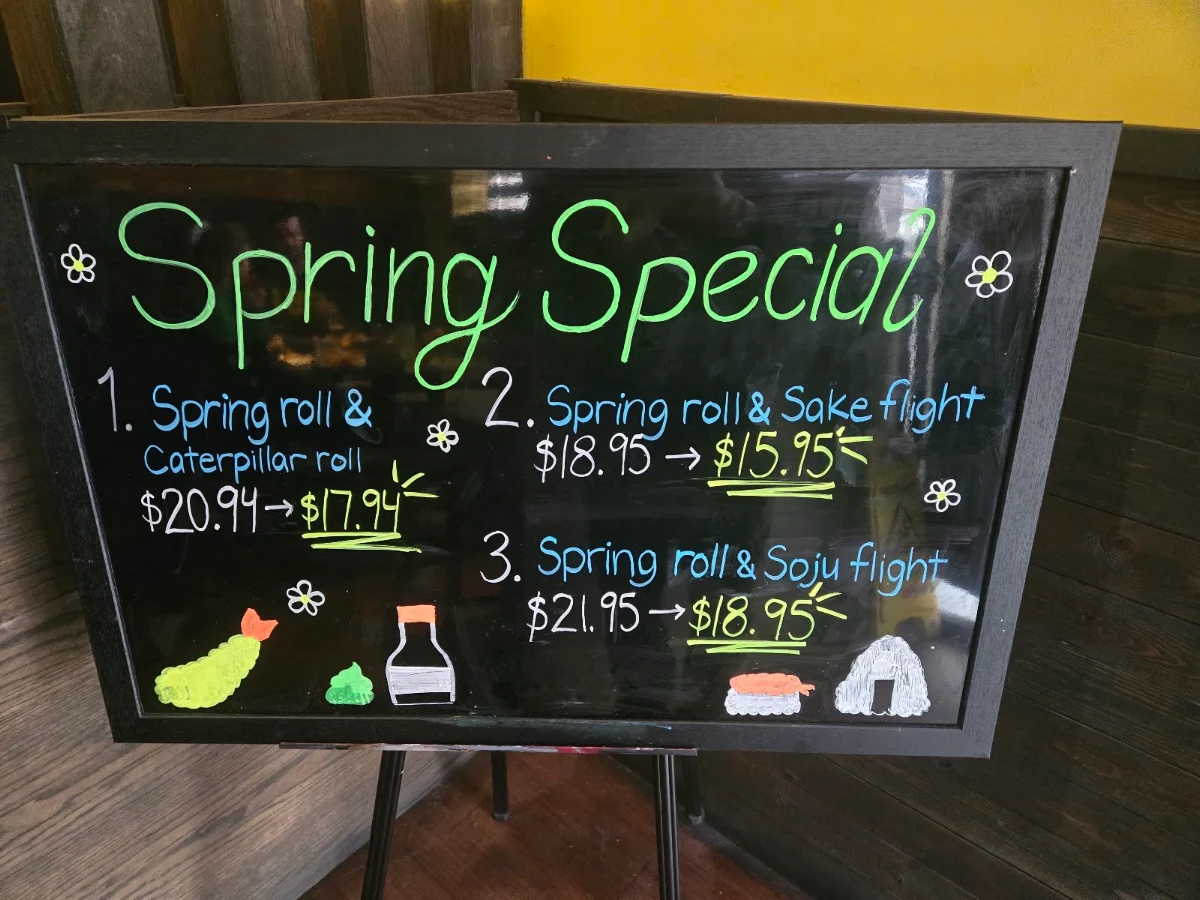 Spring Special
1. Spring roll &
Caterpillar roll
$20.94→$17.94
2. Spring roll & Sake flight
$18.95→$15.95
3. Spring roll & Soju flight
$21.95→$18.95